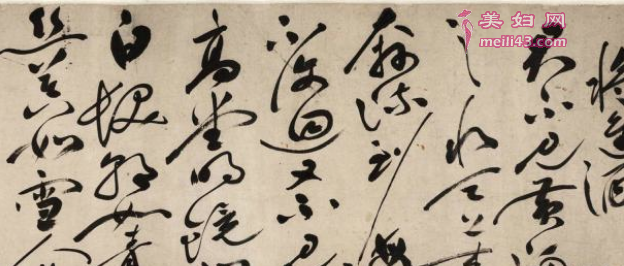 將進酒
君不見黄河
之水天上來
奔流到海
不復回又不見
高堂明鏡
白髮朝如青
絲暮如雪人
美妇网
meili43.com